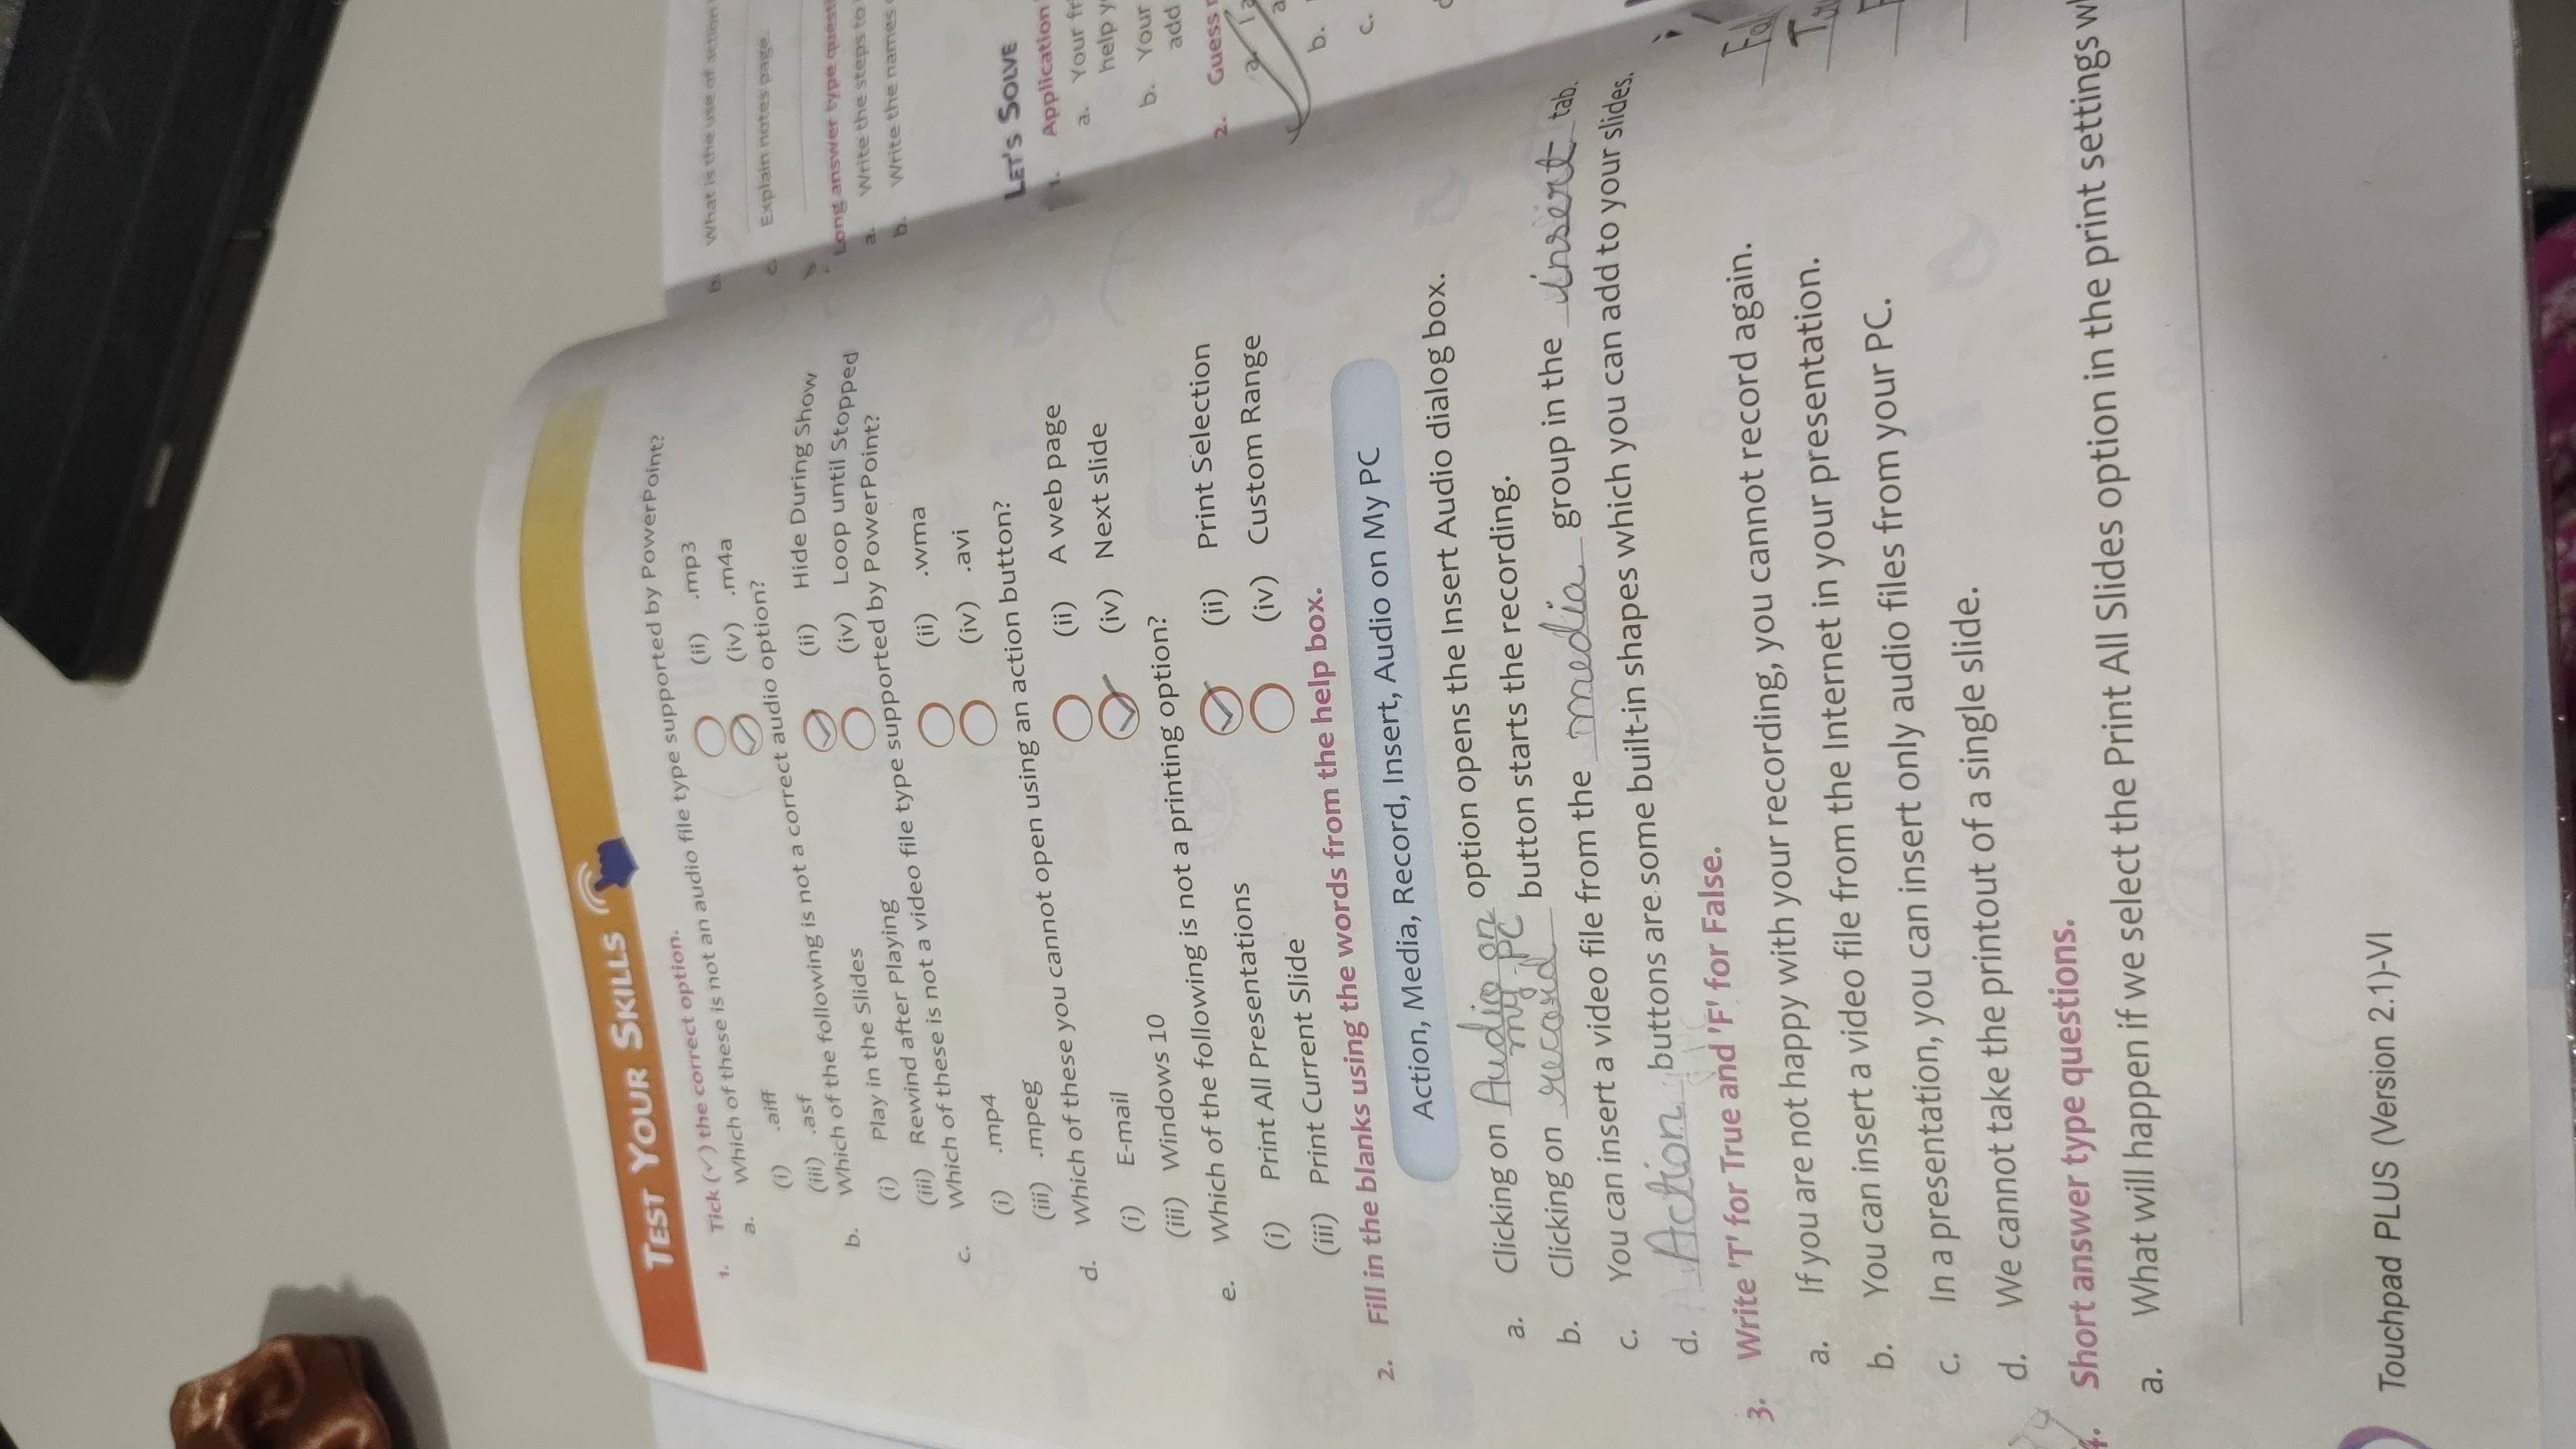 TEST YOUR SKILLS
1. Tick (✓) the correct option.
a. Which of these is not an audio file type supported by PowerPoint?
(i) .aiff (ii) .mp3
(iii) .asf (iv) .m4a
b. Which of the following is not a correct audio option?
(i) Play in the Slides (ii) Hide During Show
(iii) Rewind after Playing (iv) Loop until Stopped
c. Which of these is not a video file type supported by PowerPoint?
(i) .mp4 (ii) .wma
(iii) .mpeg (iv) .avi
d. Which of these you cannot open using an action button?
(i) E-mail (ii) A web page
(iii) Windows 10 (iv) Next slide
e. Which of the following is not a printing option?
(i) Print All Presentations (ii) Print Selection
(iii) Print Current Slide (iv) Custom Range
2. Fill in the blanks using the words from the help box.
Action, Media, Record, Insert, Audio on My PC
a. Clicking on Audio on my PC option opens the Insert Audio dialog box.
b. Clicking on record button starts the recording.
c. You can insert a video file from the media group in the insert tab.
d. Action buttons are some built-in shapes which you can add to your slides.
3. Write 'T' for True and 'F' for False.
a. If you are not happy with your recording, you cannot record again.
b. You can insert a video file from the Internet in your presentation.
c. In a presentation, you can insert only audio files from your PC.
d. We cannot take the printout of a single slide.
4. Short answer type questions.
a. What will happen if we select the Print All Slides option in the print settings
Touchpad PLUS (Version 2.1)-VI
b. What is the use of action
c. Explain notes page.
Long answer type
a. Write the steps to
b. Write the names
LET'S SOLVE
1. Application
a. Your
help
b. Your
add
2. Guess
a.
b.
c.